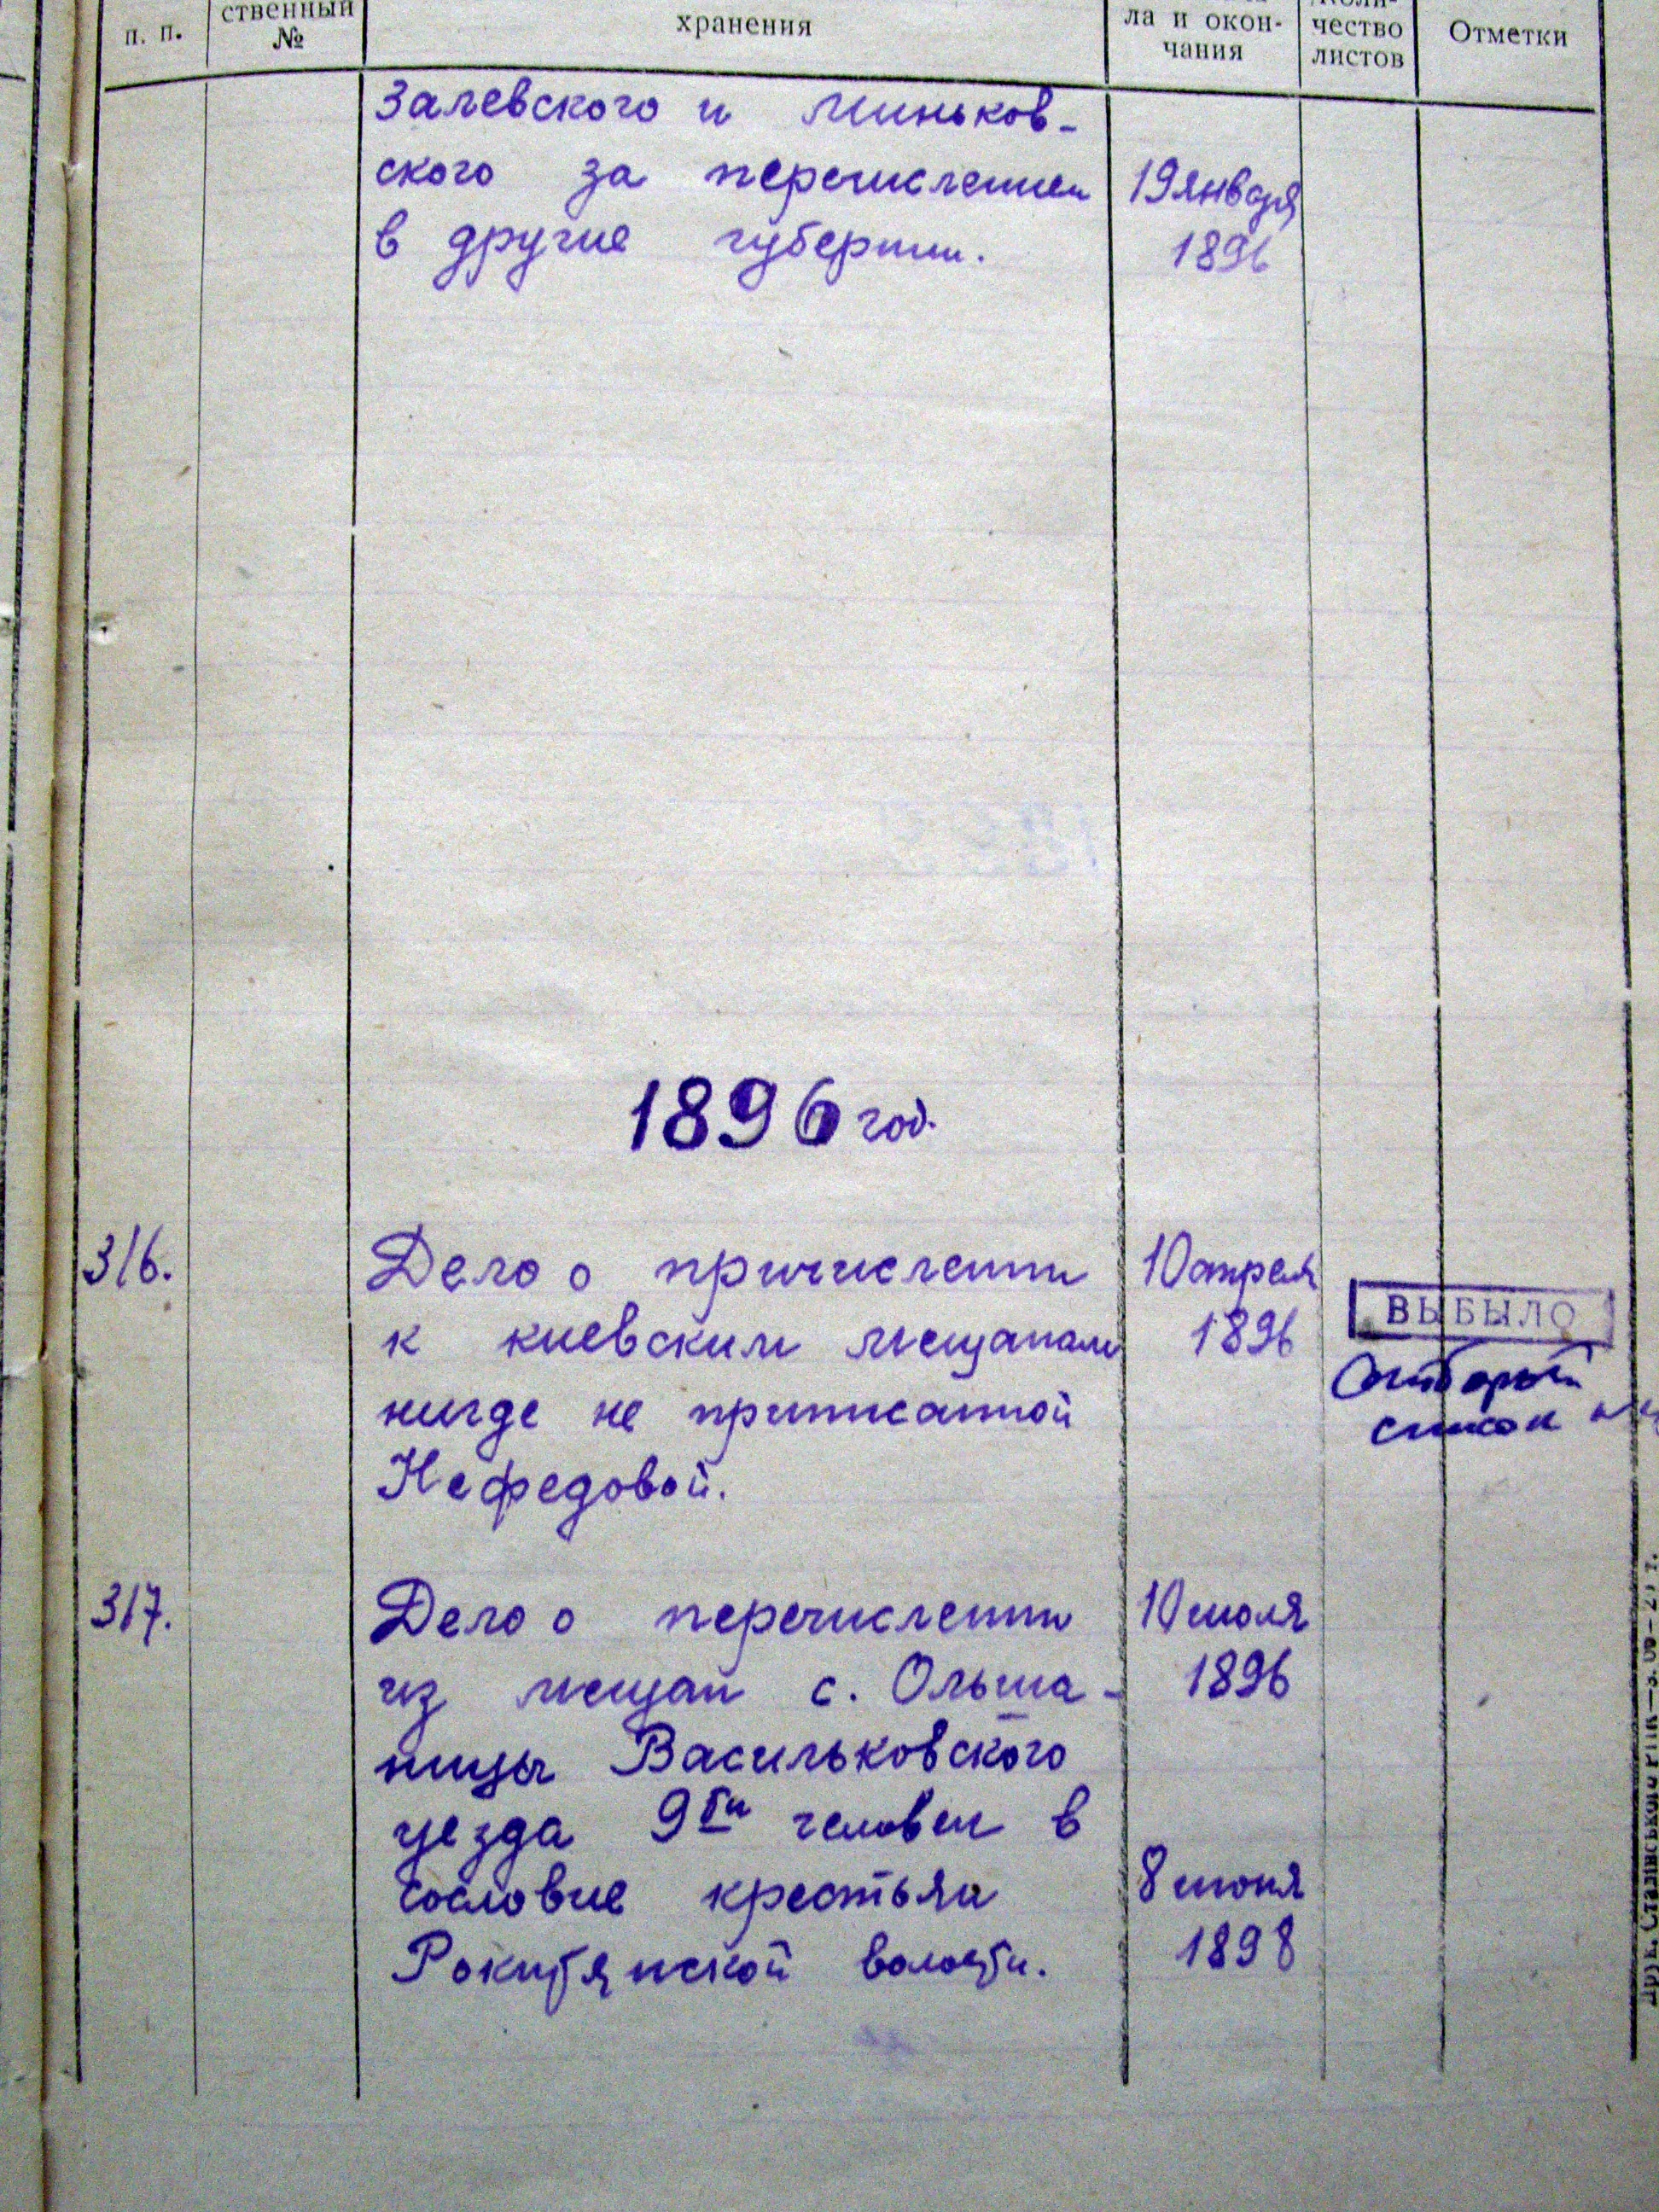 п. п.
ственный
№
хранения
ла и окон-
чания
чество
листов
Отметки
Залевского и Миньков-
ского за перечислением 19 января
в другие губернии. 1896
1896 год.
316. Дело о причислении 10 апреля
к киевским мещанам 1896
ВЫБЫЛО
нигде не приписанной
Отборный
список
Нефедовой.
317. Дело о перечислении 10 июля
из мещан с. Ольша- 1896
ницы Васильковского
уезда 9ти человек в
сословие крестьян 8 июня
Рокитянской волости. 1898